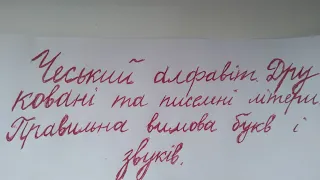 Чеський алфавіт. Дру
ковані та писемні літери.
Правильна вимова букв і
звуків.